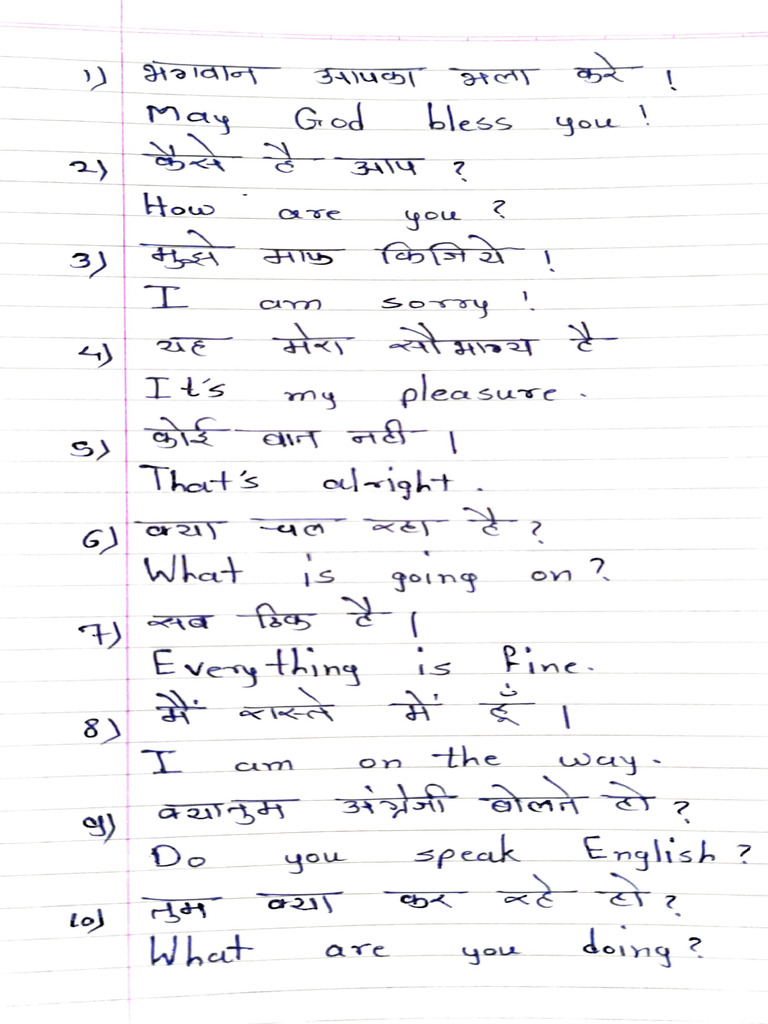 1) भगवान आपका भला करे !
May God bless you !
2) कैसे है आप ?
How are you ?
3) मुझे माफ किजिये !
I am sorry !
4) यह मेरा सौभाग्य है
It's my pleasure .
5) कोई बात नही ।
That's alright .
6) क्या चल रहा है ?
What is going on ?
7) सब ठिक है ।
Everything is fine .
8) मैं रास्ते में हूँ ।
I am on the way .
9) क्या तुम अंग्रेजी बोलते हो ?
Do you speak English ?
10) तुम क्या कर रहे हो ?
What are you doing ?